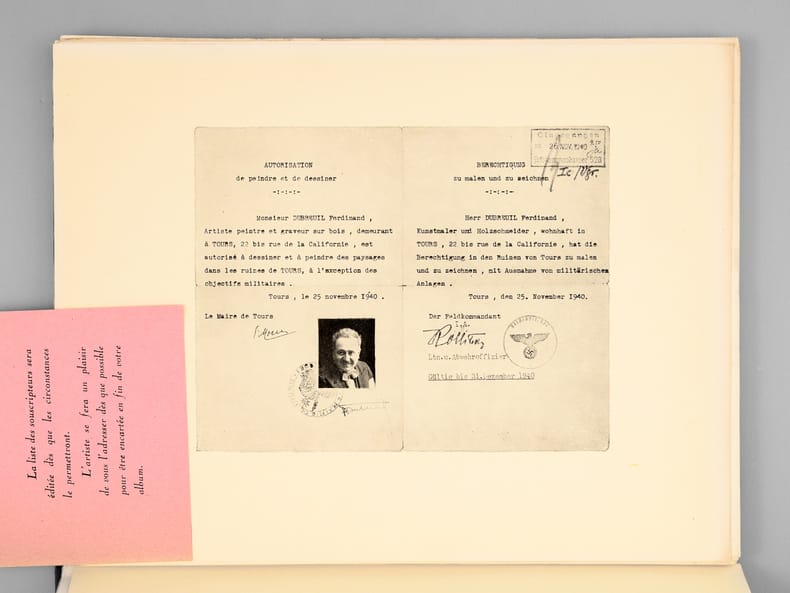 AUTORISATION
de peindre et de dessiner
-:-:-:-
Monsieur DUBREUIL Ferdinand ,
Artiste peintre et graveur sur bois , demeurant
à TOURS, 22 bis rue de la Californie , est
autorisé à dessiner et à peindre des paysages
dans les ruines de TOURS, à l'exception des
objectifs militaires .
Tours , le 25 novembre 1940 .
Le Maire de Tours
BERECHTIGUNG
zu malen und zu zeichnen
-:-:-:-
Herr DUBREUIL Ferdinand ,
Kunstmaler und Holzschneider , wohnhaft in
TOURS , 22 bis rue de la Californie , hat die
Berechtigung in den Ruinen von Tours zu malen
und zu zeichnen , mit Ausnahme von militärischen
Anlagen .
Tours , den 25. November 1940.
Der Feldkommandant
Ltn.u.Abwehroffizier
Gültig bis 31.Dezember 1940
Eingegangen
26. NOV. 1940
Ic/
La liste des souscripteurs sera
éditée dès que les circonstances
le permettront.
L'artiste se fera un plaisir
de vous l'adresser dès que possible
pour être encartée en fin de votre
album.